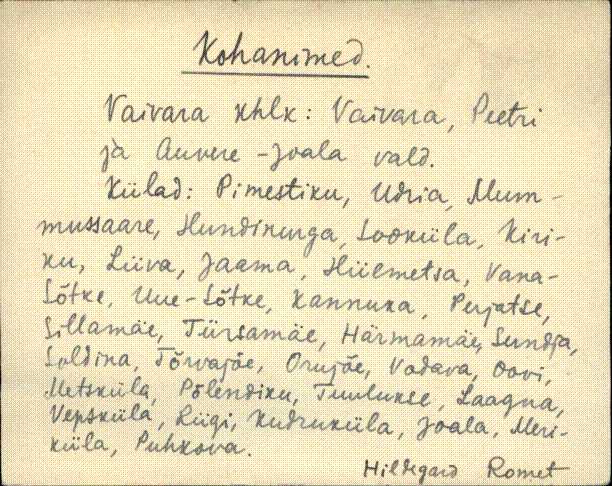 Kohanimed.
Vaivara khlk: Vaivara, Peetri
ja Auvere-Joala vald.
Külad: Pimestiku, Udria, Mum-
mussaare, Hundinurga, Sooküla, Kiri-
ku, Liiva, Jaama, Hiiemetsa, Vana-
Sõtke, Uue-Sõtke, Kannuka, Perjatse,
Sillamäe, Türsamäe, Härmamäe, Sundja,
Soldina, Tõrvajõe, Orujõe, Vodava, Oovi,
Metsküla, Põlendiku, Tuulukse, Laagna,
Vepsküla, Riigi, Kudruküla, Joala, Meri-
küla, Puhkova.
Hildegard Romet